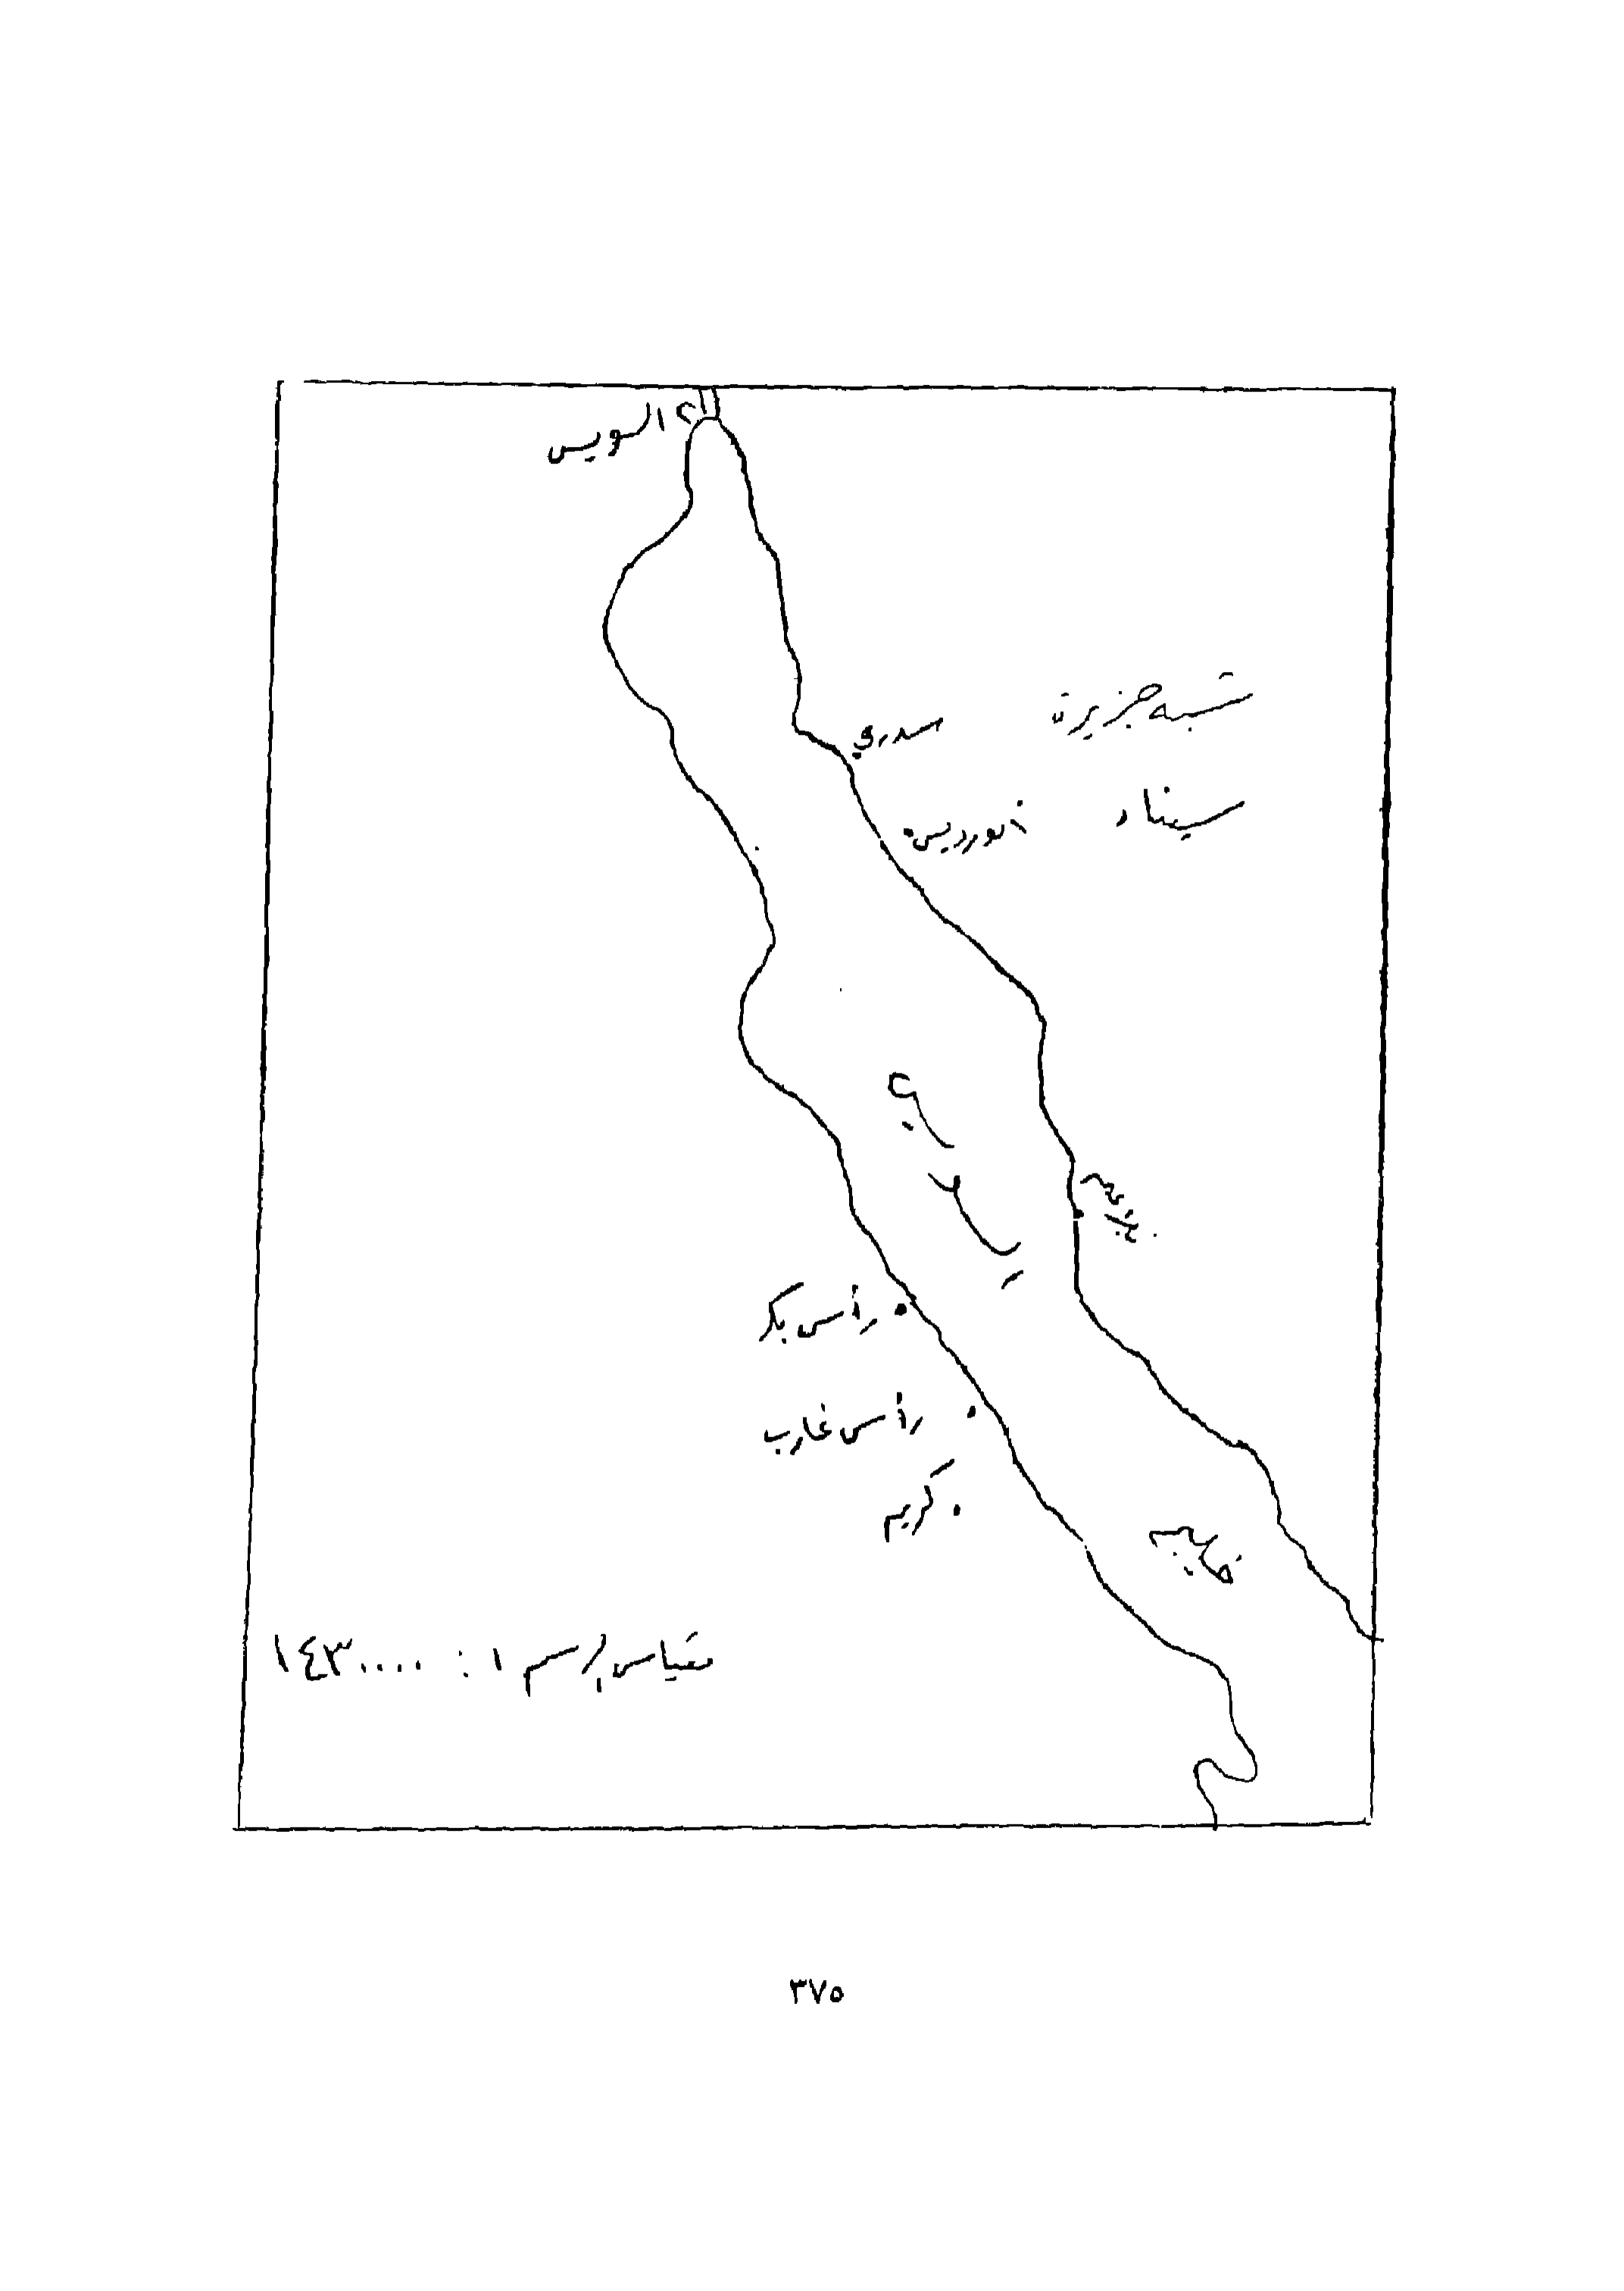 السويس
شبه جزيرة
سدري
سيناء
ابورديس
رأس بكر
رأس غارب
كريم
خليج
مقياس الرسم ١ : ١٤٣٠٠٠٠
٣٧٥